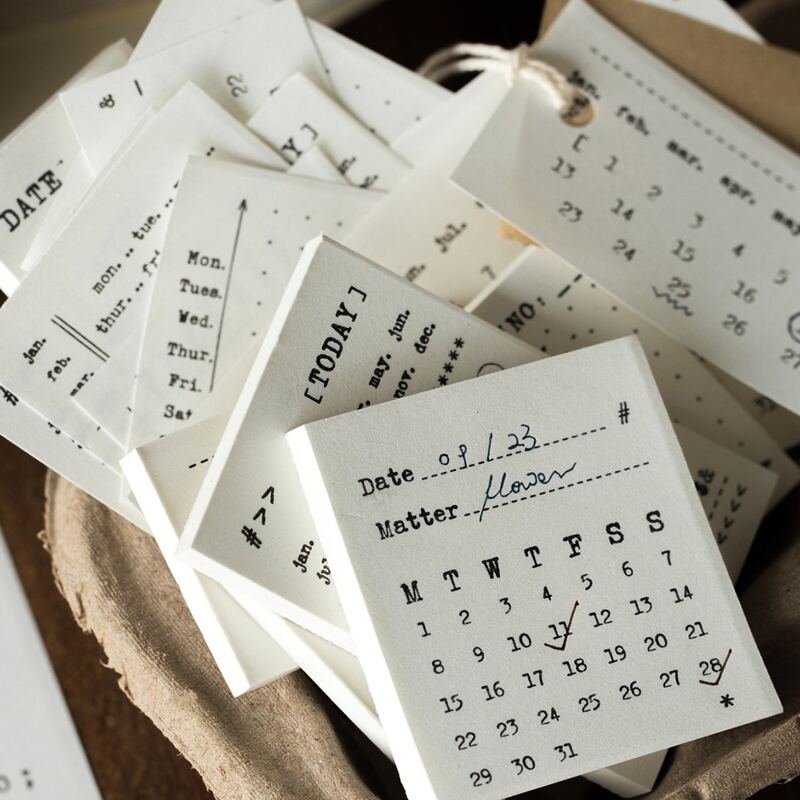 & / 22
DATE
Y ]
mon. .. tue. ..
thur. ..
jan.
feb.
mar.
#
Mon.
Tues.
Wed.
Thur.
Fri.
Sat
jul.
7
NO:
[TODAY]
may. jun.
nov. dec.
****
# >>
jan.
jan. feb. mar. apr. may
[ 1 2 3 4 5
13 14 15 16
23 24 25 26 27
Date 09 / 23 #
Matter flower
M T W T F S S
1 2 3 4 5 6 7
8 9 10 11 12 13 14
15 16 17 18 19 20 21
22 23 24 25 26 27 28
29 30 31 *